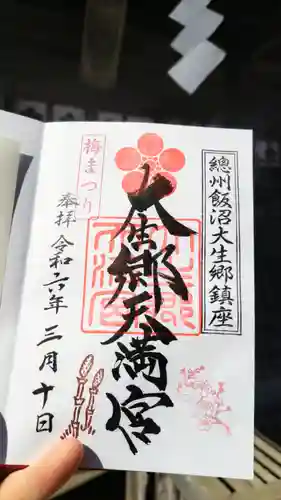 總州飯沼大生郷鎮座
大生郷天満宮
梅まつり
奉拝
令和六年三月十日